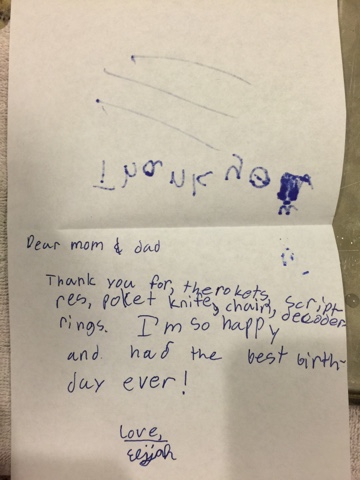 Thank you
Dear mom & dad
Thank you for, the rokets,
res, poket knife, chair, script decoder
rings. I'm so happy
and had the best birth-
day ever!
Love,
Eejjah